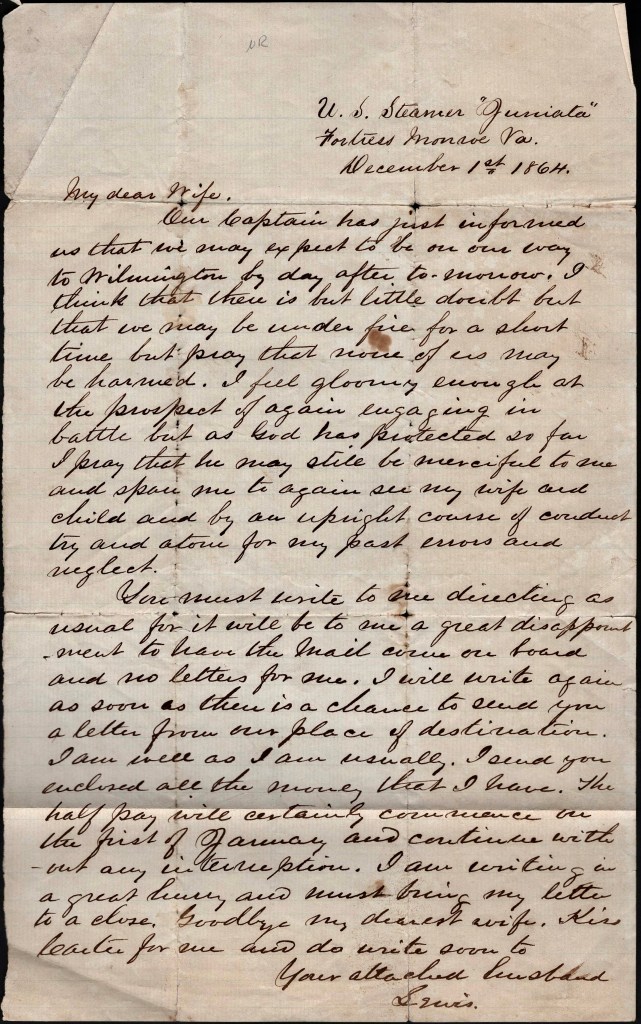 U. S. Steamer "Juniata"
Fortress Monroe Va.
December 1st 1864.
My dear Wife.
Our Captain has just informed
us that we may expect to be on our way
to Wilmington by day after to-morrow. I
think that there is but little doubt but
that we may be under fire for a short
time but pray that none of us may
be harmed. I feel gloomy enough at
the prospect of again engaging in
battle but as God has protected so far
I pray that he may still be merciful to me
and spare me to again see my wife and
child and by an upright course of conduct
try and atone for my past errors and
neglect.
You must write to me directing as
usual for it will be to me a great disappoint
-ment to have the Mail come on board
and no letters for me. I will write again
as soon as there is a chance to send you
a letter from our place of destination.
I am well as I am usually. I send you
enclosed all the money that I have. The
half pay will certainly commence on
the first of January and continue with
-out any interruption. I am writing in
a great hurry and must bring my letter
to a close. Goodbye my dearest wife. Kiss
for me and do write soon to
Your attached husband
Lewis.